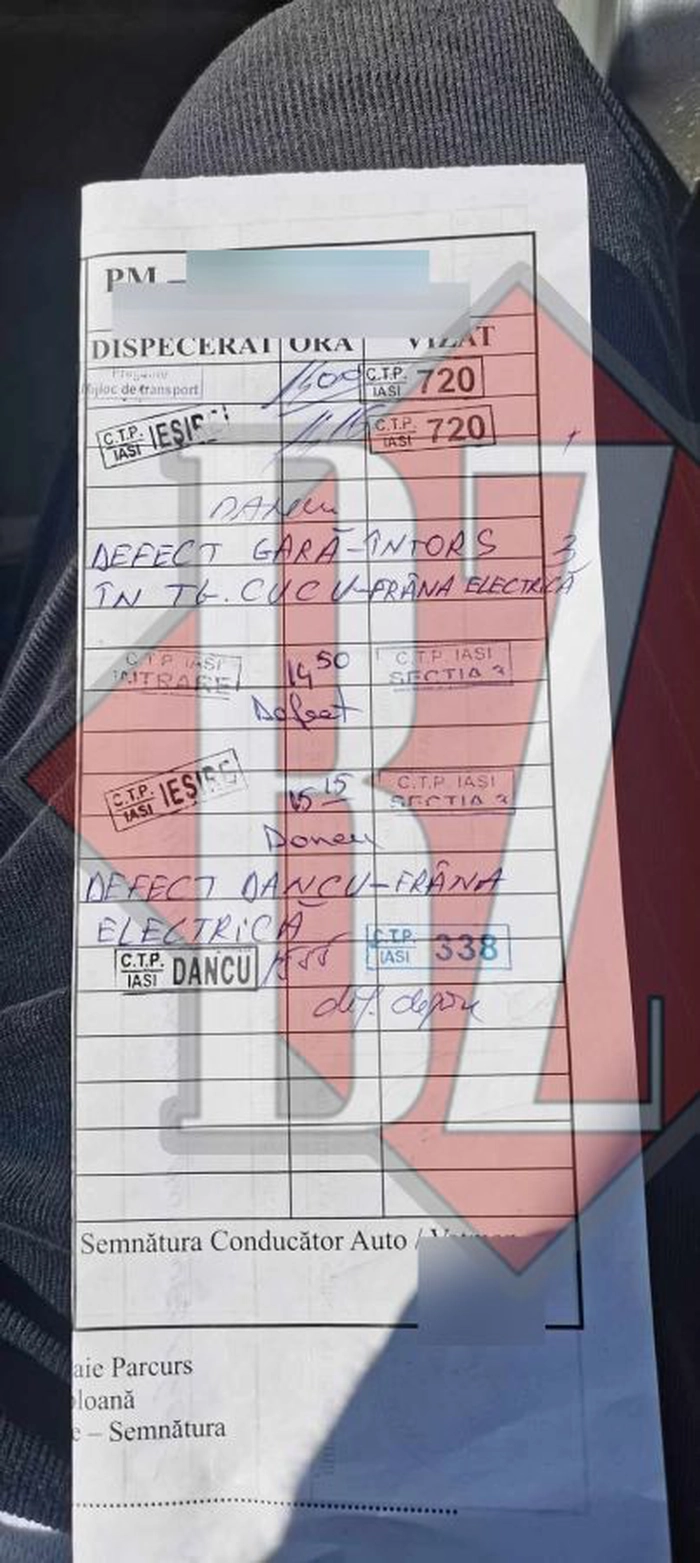 PM –
DISPECERAT ORA VIZAT
Mijloc de transport C.T.P. IASI 720
C.T.P. IASI IEȘIRE C.T.P. IASI 720
DANCU
DEFECT GARĂ-ÎNTORS 3
ÎN TG. CUCU-FRÂNA ELECTRICĂ
C.T.P. IASI INTRARE 14 50 C.T.P. IASI SECTIA 3
Defect
C.T.P. IASI IEȘIRE 15 15 C.T.P. IASI SECTIA 3
Dancu
DEFECT DANCU-FRÂNA
ELECTRICĂ
C.T.P. IASI DANCU 1555 C.T.P. IASI 338
def. depou
Semnătura Conducător Auto /
aie Parcurs
loană
e – Semnătura
BZ